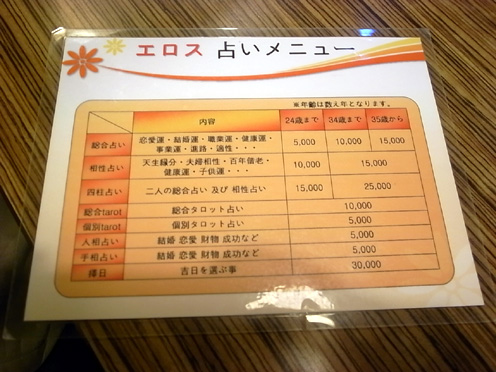 エロス 占いメニュー
※年齢は数え年となります。
内容 24歳まで 34歳まで 35歳から
総合占い 恋愛運・結婚運・職業運・健康運・ 5,000 10,000 15,000
事業運・進路・適性・・・
相性占い 天生縁分・夫婦相性・百年偕老・ 10,000 15,000
健康運・子供運・・・
四柱占い 二人の総合占い 及び 相性占い 15,000 25,000
総合tarot 総合タロット占い 10,000
個別tarot 個別タロット占い 5,000
人相占い 結婚 恋愛 財物 成功など 5,000
手相占い 結婚 恋愛 財物 成功など 5,000
擇日 吉日を選ぶ事 30,000